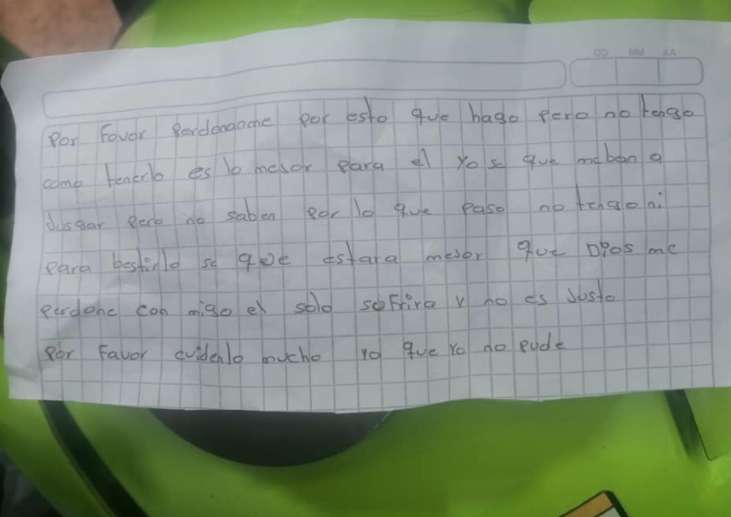 DD MM AA
Por Favor Perdonaome por esto que hago pero no tengo
como tenerlo es lo mejor para el yo se que me ban a
Jusgar pero no saben por lo que paso no tengo ni
para bestirlo se que estara mejor que DIOS me
perdone con migo el solo sofrira y no es Justo
Por Favor cuidenlo mucho ya que yo no pude